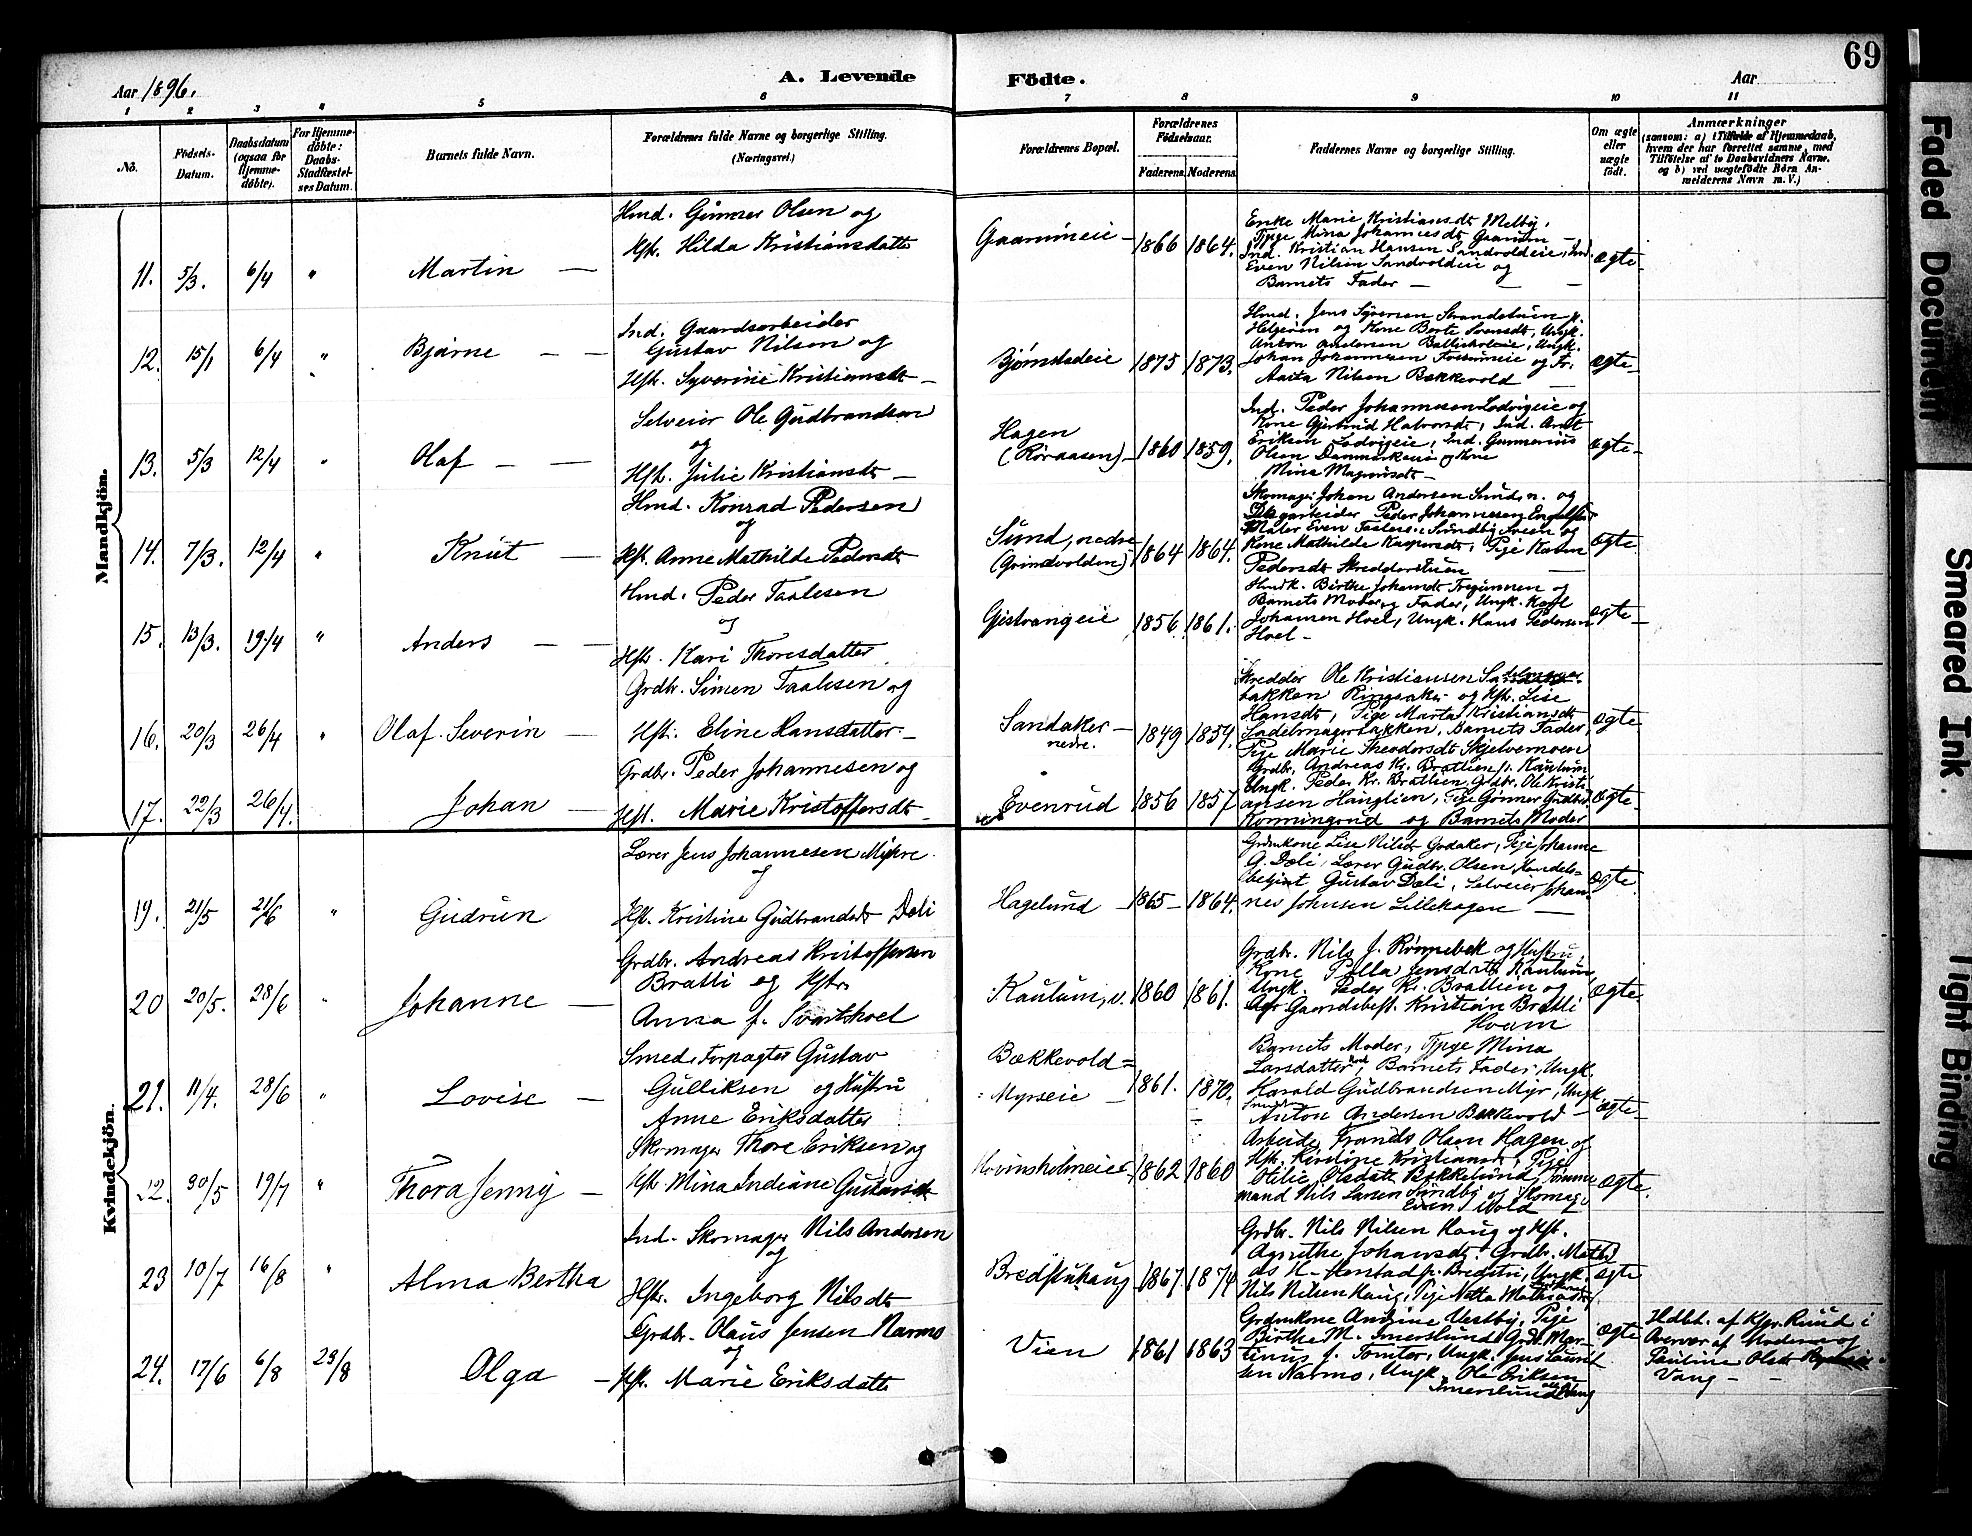 69
Aar 1896.
A. Levende Födte.
Aar
1 2 3 4 5 6 7 8 9 10 11
No.
Födsels-Datum.
Daabsdatum (ogsaa for Hjemmedöbte).
For Hjemmedöbte: Daabs-Stadfæstelses Datum.
Barnets fulde Navn.
Forældrenes fulde Navne og borgerlige Stilling.
(Næringsvei.)
Forældrenes Bopæl.
Forældrenes Födselsaar.
Faderens. Moderens.
Faddernes Navne og borgerlige Stilling.
Om ægte eller uægte födt.
Anmærkninger
(saasom: a) i Tilfælde af Hjemmedaab,
hvem der har forrettet samme, med
Tilföielse af to Daabsvidners Navne,
og b) ved uægtefödte Børn An-
melderens Navn m. V.)
Mandkjön.
Hmd. Gunner Olsen og
Hst. Hilda Kristiansdatter
11. 5/3. 6/4 " Martin —
Gaarumeie — 1866 1864.
Enke Marie Kristiansdt Melby,
Pige Mina Johannesdt Gaarum —
Ind. Kristian Hansen Sandvoldeie, Ind.
Even Nilsen Sandvoldeie og
Barnets Fader —
ægte
Ind. Gaardsarbeider
Gustav Nilsen og
Hst. Syverine Kristiansdt —
12. 15/1 6/4 " Bjarne — —
Bjørnstadeie 1875 1873.
Hmd. Jens Syversen
Helgøen og Kone Berte Svensdt, Ungk.
Anton Andersen Ungk.
Johan Johannesen og Fr.
Nilsen Bækkevold
ægte
Selveier Ole Gudbrandsen
og
Hst. Julie Kristiansdt —
13. 5/3 12/4 " Olaf — —
Hagen
(Røraasen) 1860 1859.
Ind. Peder Johannesen Lodvigeie og
Kone Gjertrud Halvorsdt, Ind.
Eriksen Lodvigeie, Ind. Gunnerius
Olsen og Kone
Mina Magnusdt
ægte
Hmd. Konrad Pedersen
og
Hst. Anne Mathilde Pedersdt
14. 7/3. 12/4 " Knut —
Sund, nedre
(Grindvolden) 1864 1864.
Skomager Johan Andersen Sund, n. og
Peder Johannesen
Maler Even og
Kone Mathilde Kaspersdt, Pige Karen
Pedersdt Skredderstuen
ægte
Hmd. Peder Taalesen
og
Hst. Kari Thoresdatter
15. 13/3. 19/4 " Anders — —
Gistvangeie 1856 1861.
Birthe Johansdt og
Barnets Moder og Fader, Ungk. Karl
Johansen Hoel, Ungk. Hans Pedersen
Hoel —
ægte
Grdbr. Simen Taalesen og
Hst. Eline Hansdatter —
16. 20/3 26/4 " Olaf Severin —
Sandaker —
nedre. 1849 1854.
Skredder Ole Kristiansen
bakken Ringsaker og Hst. Lise
Hansdt, Pige Marta Kristiansdt
Sadelmagerbakken, Barnets Fader,
Pige Marie Theodorsdt Skjelvernoen
ægte
Grdbr. Peder Johannesen og
Hst. Marie Kristoffersdt
17. 22/3 26/4. Johan —
Evenrud 1856 1857
Grdbr. Andreas Kr. Brattlien p. Kaulum
Ungk. Peder Kr. Brattlien, Gbr. Ole Kristi-
ansen Hauglien, Pige Gunner Gudbrd.
Korningrud og Barnets Moder
ægte
Kvindekjön.
Lærer Jens Johannesen Myhre
og
Hst. Kristine Gudbrandsdt Dæli
19. 21/5 21/6 " Gudrun
Hagelund 1865 1864.
Grdmkone Lise Nilsdt Godaker, Pige Johanne
G. Dæli, Lærer Gudbr. Olsen, Handels-
betjent Gustav Dæli, Selveier Johan-
nes Johnsen Lillehagen —
ægte.
Grdbr. Andreas Kristoffersen
Bratli og Hstr.
Anna f. Svartshoel
20 20/5. 28/6 " Johanne —
Kaulum, v. 1860 1861.
Grdbr. Nils J. Rønnebek og Hustru,
Kone Pella Jensdatter Kaulum
Ungk. Peder Kr. Brattlien og
Gaardsbest. Kristian Bratli
Hvam
ægte
Smed, Forpagter Gustav
Gulliksen og Hustru
Anne Eriksdatter
21. 11/4. 28/6 " Lovise —
Bækkevold =
Myrseie — 1861. 1870.
Barnets Moder, Pige Mina
Larsdatter, Barnets Fader, Ungk.
Harald Gudbrandsen Myr, Ungk.
Anton Andersen Bækkevold —
ægte
Skomager Thore Eriksen og
Hst. Mina Indiane Gustavsdt
22. 30/5 19/7 " Thora Jenny —
Hovinsholmeie 1862 1860
Arbeider Frands Olsen Hagen og
Hst. Kirstine Kristiansdt, Pige
Otilie Olsdatter Bækkelund, Tømmer-
mand Nils Larsen Sundby og Skomager
Even Wold
ægte.
Ind. Skomager Nils Andersen
og
Hstr. Ingeborg Nilsdt
23 10/7 16/8 " Alma Bertha
Bredstuhaug 1867 1874
Grdbr. Nils Nilsen Haug og Hst.
Agnethe Johansdt. Grdbr. Mathi-
as H. p. Bredstu, Ungk.
Nils Nilsen Haug, Pige Netta Mathiasdtr
ægte
Grdbr. Olaus Jensen Narmo
og
Hst. Marie Eriksdatter
24. 17/6 6/8 23/8 Olga —
Vien 1861 1863
Grdmkone Andrine Vestby, Pige
Birthe M. Imerslund, Grdbr. Mar-
tinus J. Tomter, Ungk. Jens Laurit-
sen Narmo, Ungk. Ole Eriksen
Imerslund
ægte
Hdbt. af Kfgr. Ruud i
Overvær af Moderen og
Pauline Olsdt
Vang —
Faded Document
Smeared Ink.
Tight Binding